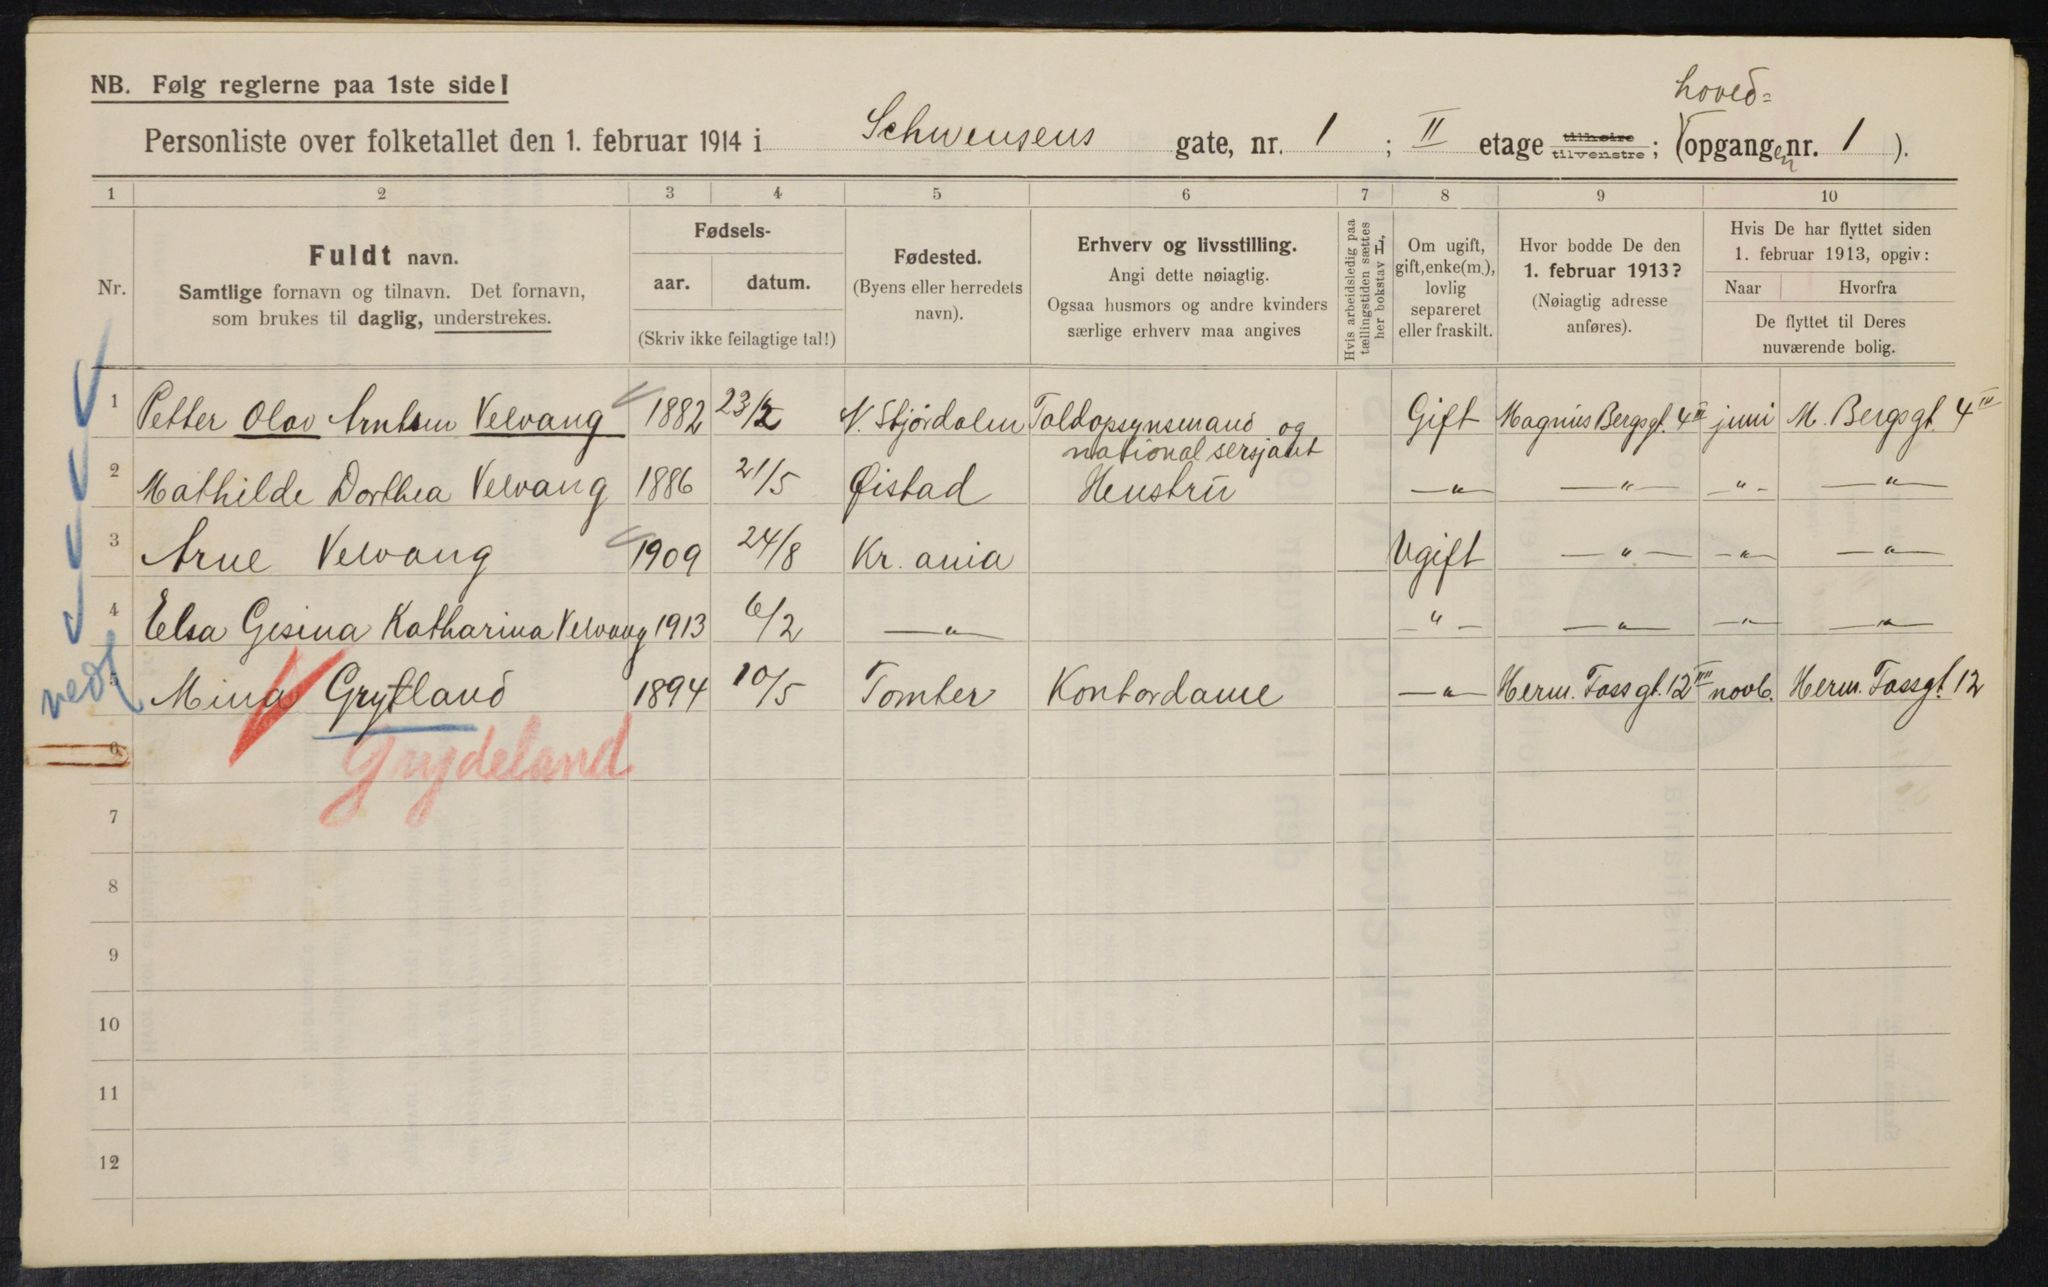 NB. Følg reglerne paa 1ste side!
hoved=
Personliste over folketallet den 1. februar 1914 i Schwensens gate, nr. 1 ; II etage tilhøire tilvenstre ; (opgangen nr. 1 ).
1 2 3 4 5 6 7 8 9 10
Nr.
Fuldt navn.
Samtlige fornavn og tilnavn. Det fornavn,
som brukes til daglig, understrekes.
Fødsels-
aar. datum.
(Skriv ikke feilagtige tal!)
Fødested.
(Byens eller herredets
navn).
Erhverv og livsstilling.
Angi dette nøiagtig.
Ogsaa husmors og andre kvinders
særlige erhverv maa angives
Hvis arbeidsledig paa
tællingstiden sættes
her bokstav H,
Om ugift,
gift, enke(m.),
lovlig
separeret
eller fraskilt.
Hvor bodde De den
1. februar 1913?
(Nøiagtig adresse
anføres).
Hvis De har flyttet siden
1. februar 1913, opgiv:
Naar Hvorfra
De flyttet til Deres
nuværende bolig.
1 Petter Olav Arntsen Velvang 1882 23/2 N. Stjørdalen Toldopsynsmand og Gift Magnus Bergsgt. 4 III juni M. Bergsgt. 4 III
nationalsersjant
2 Mathilde Dorthea Velvang 1886 21/5 Øistad Hustru —"— —"— —"— —"—
3 Arne Velvang 1909 24/8 Kr.ania Ugift —"— —"— —"—
4 Elsa Gesina Katharina Velvang 1913 6/2 —"— —"— —"— —"— —"—
5 Mina Grytland 1894 10/5 Tomter Kontordame —"— Herm. Fossgt. 12 III novb. Herm. Fossgt. 12
6
Grydeland
7
8
9
10
11
12